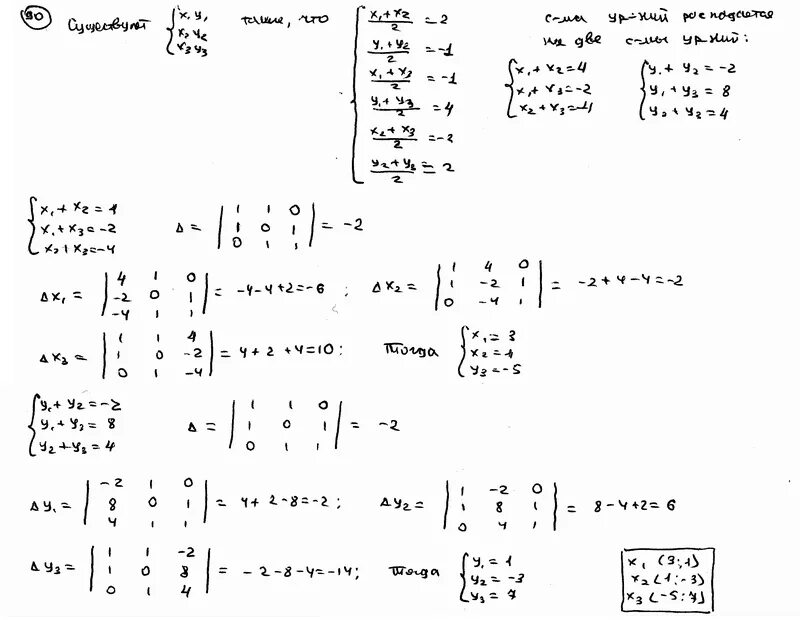 90 Существуют { x₁ y₁ ; x₂ y₂ ; x₃ y₃ такие, что { (x₁ + x₂)/2 = 2 ; (y₁ + y₂)/2 = -1 ; (x₁ + x₃)/2 = -1 ; (y₁ + y₃)/2 = 4 ; (x₂ + x₃)/2 = -2 ; (y₂ + y₃)/2 = 2
с-ма ур-ний распадается
на две с-мы ур-ний:
{ x₁ + x₂ = 4 ; x₁ + x₃ = -2 ; x₂ + x₃ = -4
{ y₁ + y₂ = -2 ; y₁ + y₃ = 8 ; y₂ + y₃ = 4
{ x₁ + x₂ = 4 ; x₁ + x₃ = -2 ; x₂ + x₃ = -4
Δ = | 1 1 0 ; 1 0 1 ; 0 1 1 | = -2
Δx₁ = | 4 1 0 ; -2 0 1 ; -4 1 1 | = -4-4+2=-6 ; Δx₂ = | 1 4 0 ; 1 -2 1 ; 0 -4 1 | = -2+4-4=-2
Δx₃ = | 1 1 4 ; 1 0 -2 ; 0 1 -4 | = 4+2+4=10; Тогда { x₁ = 3 ; x₂ = 1 ; y₃ = -5
{ y₁ + y₂ = -2 ; y₁ + y₃ = 8 ; y₂ + y₃ = 4
Δ = | 1 1 0 ; 1 0 1 ; 0 1 1 | = -2
Δy₁ = | -2 1 0 ; 8 0 1 ; 4 1 1 | = 4+2-8=-2; Δy₂ = | 1 -2 0 ; 1 8 1 ; 0 4 1 | = 8-4+2=6
Δy₃ = | 1 1 -2 ; 1 0 8 ; 0 1 4 | = -2-8-4=-14; Тогда { y₁ = 1 ; y₂ = -3 ; y₃ = 7
x₁ (3;1)
x₂ (1;-3)
x₃ (-5;7)